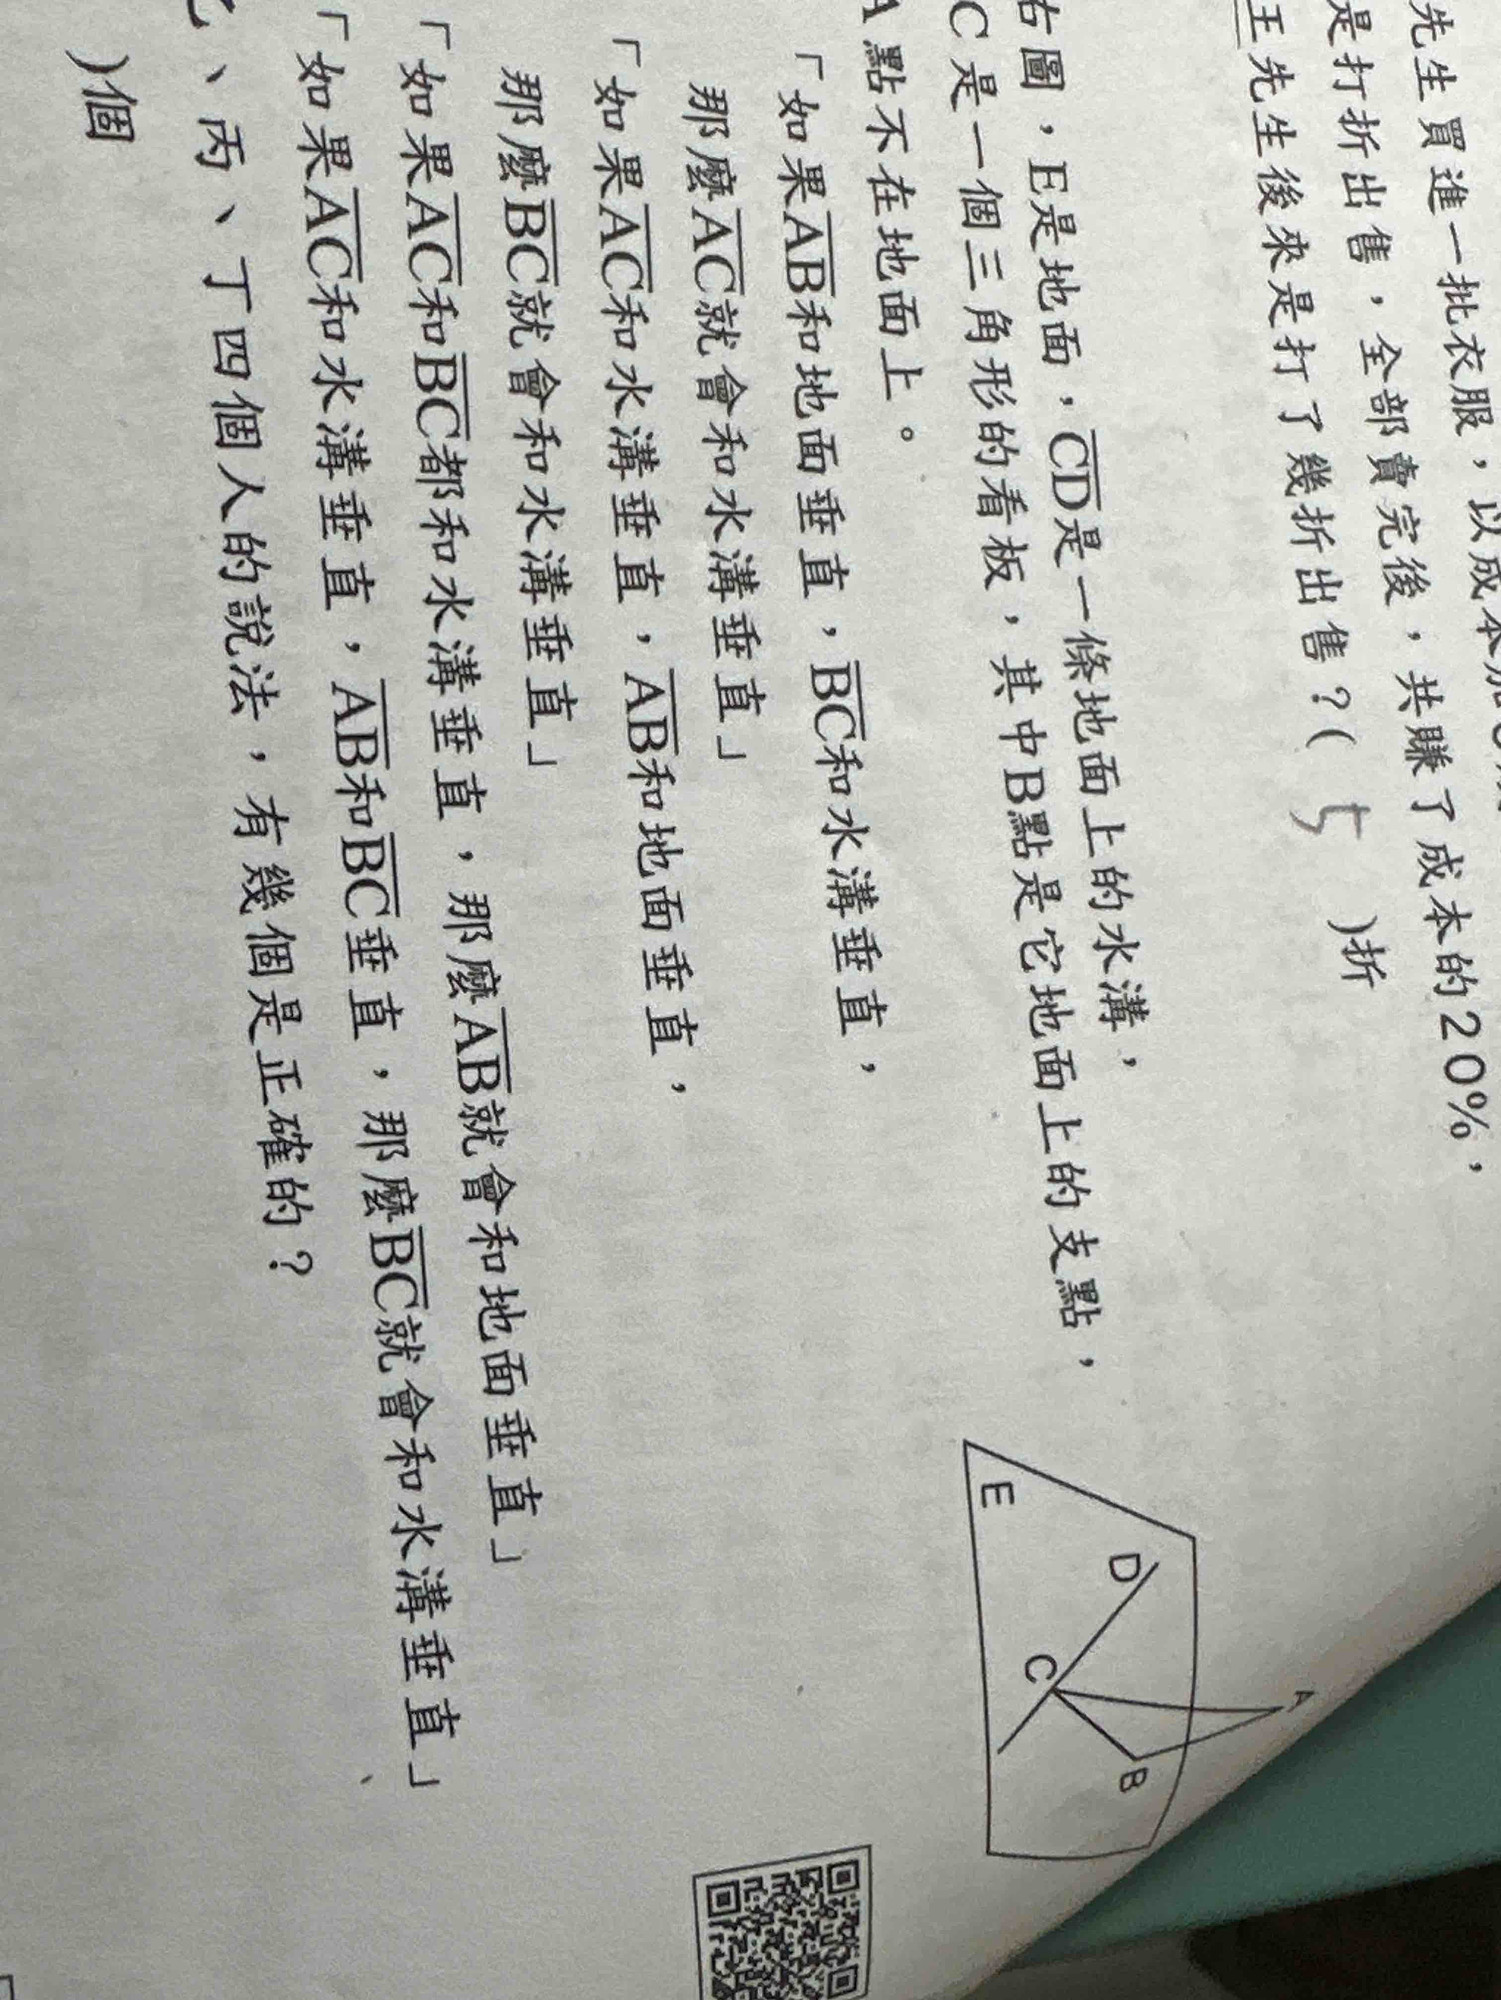 先生買進一批衣服，以成本加
是打折出售，全部賣完後，共賺了成本的20%，
王先生後來是打了幾折出售？( 5 )折
右圖，E是地面，CD是一條地面上的水溝，
C是一個三角形的看板，其中B點是它地面上的支點，
A點不在地面上。
「如果AB和地面垂直，BC和水溝垂直，
那麼AC就會和水溝垂直」
「如果AC和水溝垂直，AB和地面垂直，
那麼BC就會和水溝垂直」
「如果AC和BC都和水溝垂直，那麼AB就會和地面垂直」
「如果AC和水溝垂直，AB和BC垂直，那麼BC就會和水溝垂直」
、丙、丁四個人的說法，有幾個是正確的？
)個
A
D
C
B
E